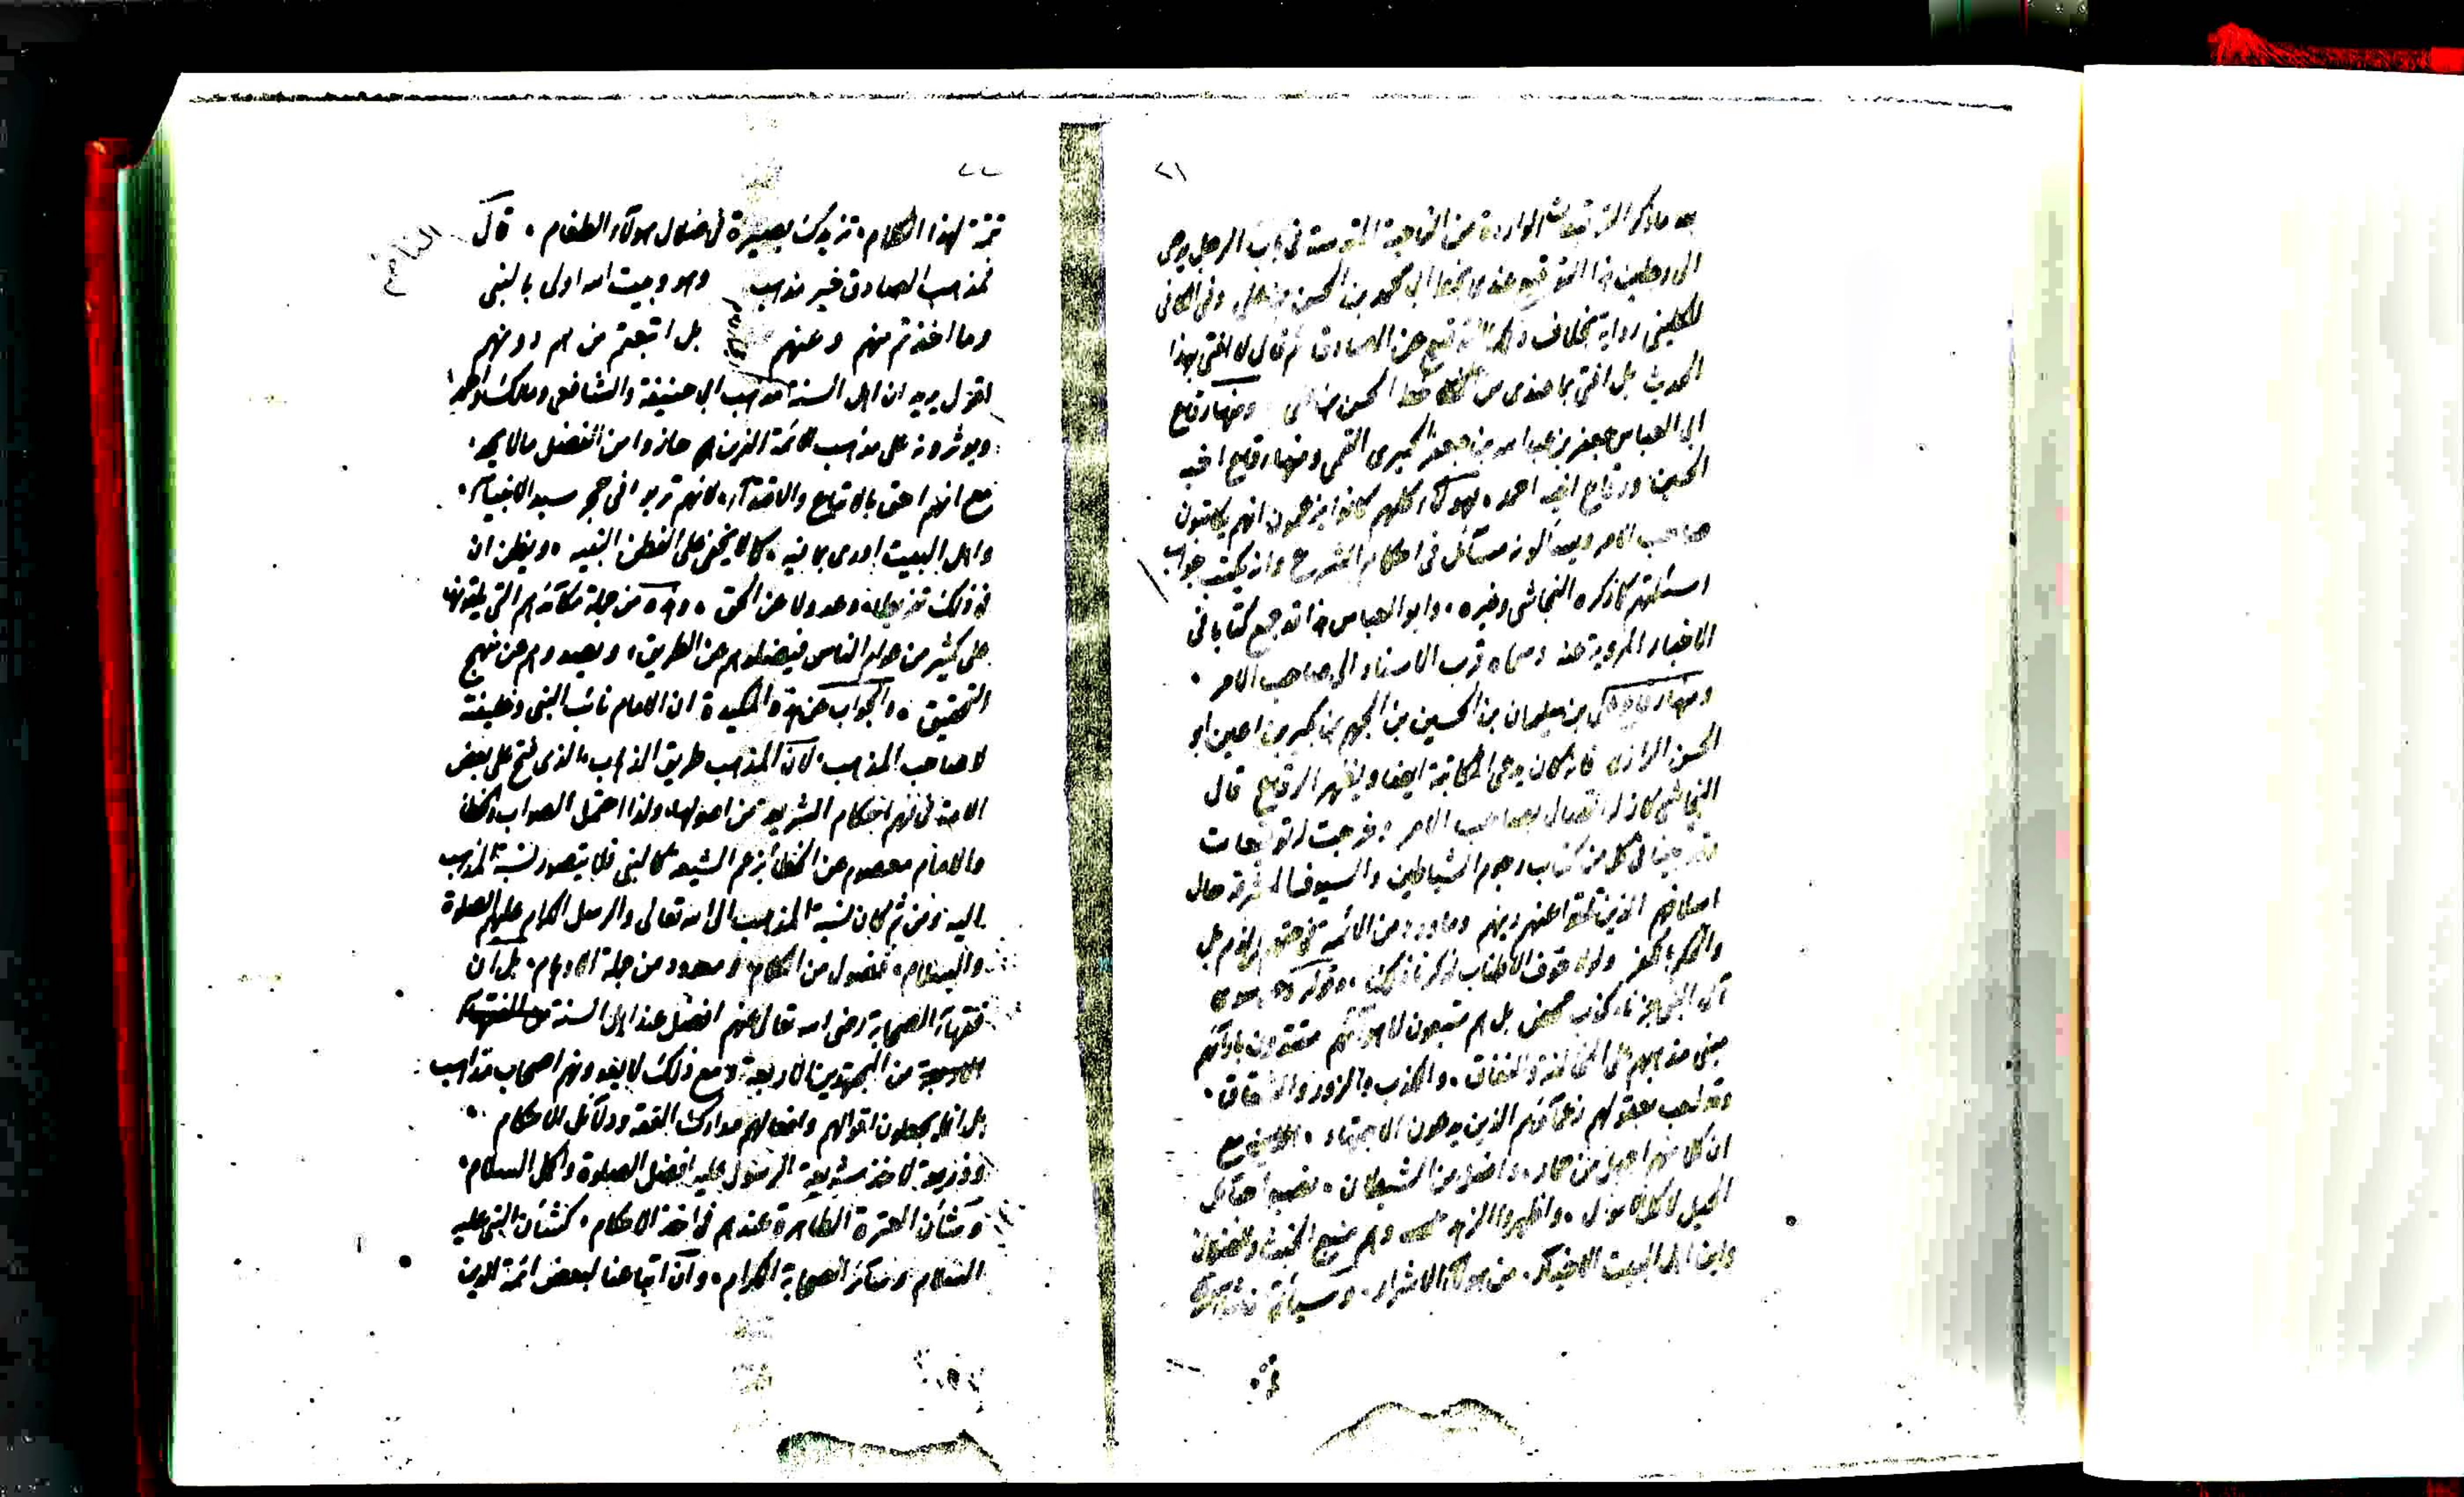 ٢١
بعد ما ذكر التوقيعات الواردة من الناحية المقدسة في باب الرجل يوصى
الى رجلين هذا التوقيع عندي بخط ابي محمد بن الحسن بن علي وفي الكافي
للكليني رواية بخلاف ذلك التوقيع عن الصادق ثم قال لا افتي بهذا
الحديث بل افتي بما عندي من خط الحسن بن علي ومنها رقاع
ابي العباس جعفر بن عبد الله بن جعفر الحميري القمي ومنها رقاع اخيه
الحسين ورقاع اخيه احمد ، فهؤلاء كلهم كانوا يزعمون انهم يكاتبون
صاحب الامر ويسألونه مسائل في احكام الشرع وانه يكتب جواب
اسئلتهم كما ذكره النجاشي وغيره ، وابو العباس هذا قد جمع كتابا في
الاخبار المروية عنه وسماه قرب الاسناد الى صاحب الامر ،
ومنها رقاع علي بن سليمان بن الحسين بن الجهم بن بكير بن اعين ابو
الحسن الرازي فانه كان يدعى المكاتبة ايضا ويظهر الرقاع قال
النجاشي كان له اتصال بصاحب الامر وخرجت له توقيعات
وقد بينا في كل من كتاب رجوم الشياطين والسيوف المشرقة حال
اسلافهم الذين تلقوا عنهم دينهم وما ورد من الائمة في حقهم من الذم بل
والحكم بالكفر ولولا خوف الاطناب لذكرنا ذلك ، وقوله
آل النبي كذب محض بل هم متبعون لاهوائهم مقتدون بآرائهم
مبنى مذهبهم على المخالفة والنفاق ، والكذب والزور والشقاق ،
وقد لعب بعقولهم زعماؤهم الذين يدعون الاجتهاد ، مع
ان كلا منهم اجهل من حمار ، واضل من الشيطان ، نصبوا حبائل
الحيل لاكل الاموال ، واظهروا الزهد وهم منبع الخبث والضلال
واين اهل البيت الاخيار ، من هؤلاء الاشرار ، وسيأتي
٢٢
تتمة لهذا الكلام ، تزيدك بصيرة في ضلال هؤلاء الطغام ، قال
الناظم
فمذهب الصادق خير مذهب وهو وبيت الله اولى بالنبي
وما اخذتم منهم وعنهم بل اتبعتم من هم دونهم
اقول يريد ان اهل السنة مذهب ابي حنيفة والشافعي ومالك واحمد ،
ويؤثرونه على مذهب الائمة الذين هم حازوا من الفضل ما لا يحد ،
مع انهم احق بالاتباع والاقتداء ، لانهم تربوا في حجر سيد الانبياء ،
واهل البيت ادرى بما فيه ، كما لا يخفى على الفطن النبيه ، ويظن ان
في ذلك تفريطا ، وعدولا عن الحق ، وهذه من جملة مكائدهم التي يلقونها
على كثير من عوام الناس فيضلونهم عن الطريق ، ويصدونهم عن منهج
التحقيق ، والجواب عن هذه المكيدة ان الامام نائب النبي وخليفته
لا صاحب المذهب ، لان المذهب طريق الذهاب ، الذي فتح على بعض
الامة في فهم احكام الشريعة من اصولها ، ولذا احتمل الصواب والخطأ
والامام معصوم عن الخطأ بزعم الشيعة كالنبي فلا يتصور نسبة المذهب
اليه ومن ثم كان نسبة المذهب الى الله تعالى والرسل الكرام عليهم الصلوة
والسلام ، فضول من الكلام ، ومعدود من جملة الاوهام ، بل ان
فقهاء الصحابة رضى الله تعالى عنهم افضل عند اهل السنة
من المجتهدين الاربعة ، ومع ذلك لا يعدونهم اصحاب مذاهب
بل انهم يجعلون اقوالهم وافعالهم مدارك الفقه ودلائل الاحكام ،
وذريعة لاخذ شريعة الرسول عليه افضل الصلوة واكمل السلام ،
وشأن العترة الطاهرة عندهم في اخذ الاحكام ، كشأن النبي عليه
السلام وسائر الصحابة الكرام ، وان اتباعنا لبعض ائمة الدين